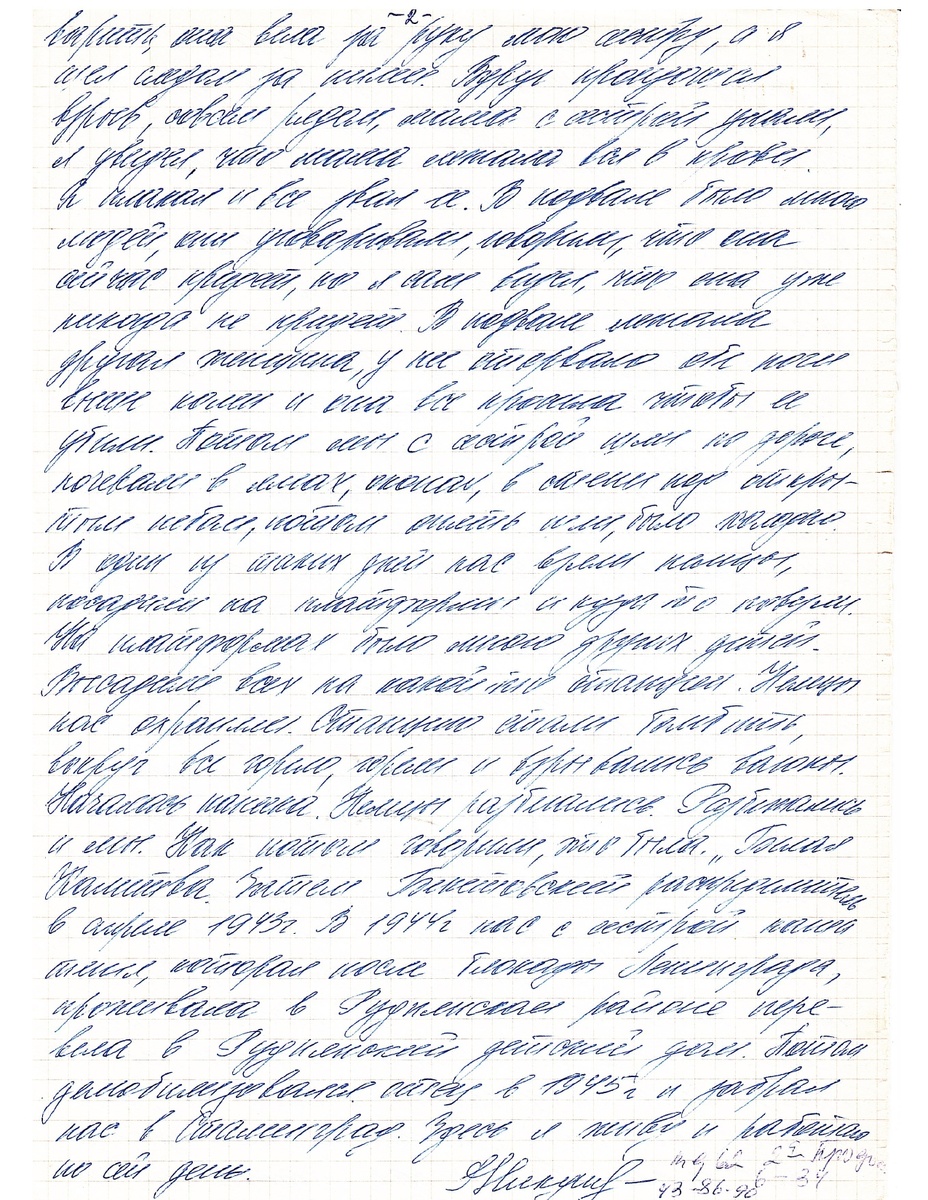 -2-
она вела за руку мою сестру, а я
шел следом за ними. Вдруг произошел
взрыв, совсем рядом, мама с сестрой упали,
я увидел, что мама лежала вся в крови.
Я плакал и все звал ее. В подвале было много
людей, они уговаривали, говорили, что она
сейчас придет, но я сам видел, что она уже
никогда не придет. В подвале лежала
другая женщина, у нее оторвало обе ноги
выше колен и она все просила чтобы ее
убили. Потом мы с сестрой шли по дороге,
ночевали в ямах, окопах, в степи под откры-
тым небом, потом опять шли, было холодно.
В один из таких дней нас взяли немцы,
посадили на платформы и куда то повезли.
На платформах было много других детей.
Высадили всех на какой то станции. Немцы
нас охраняли. Станцию стали бомбить,
вокруг все горело, горели и взрывались вагоны.
Началась паника. Немцы разбежались. Разбежались
и мы. Как потом говорили, это была "Белая
Калитва. Затем Бекетовский распределитель
в апреле 1943г. В 1944г нас с сестрой нашла
тетя, которая после блокады Ленинграда,
проживала в Руднянском районе пере-
вела в Руднянский детский дом. Потом
демобилизовался отец в 1945г и забрал
нас в Сталинград. Здесь я живу и работаю
по сей день.